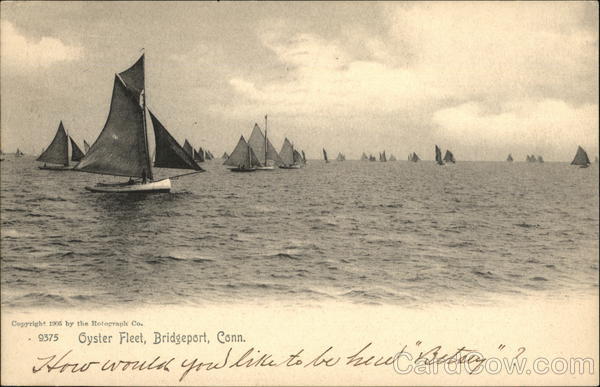 Copyright 1905 by the Rotograph Co.
9375 Oyster Fleet, Bridgeport, Conn.
How would you like to be here "Betsey"?
CardCow.com